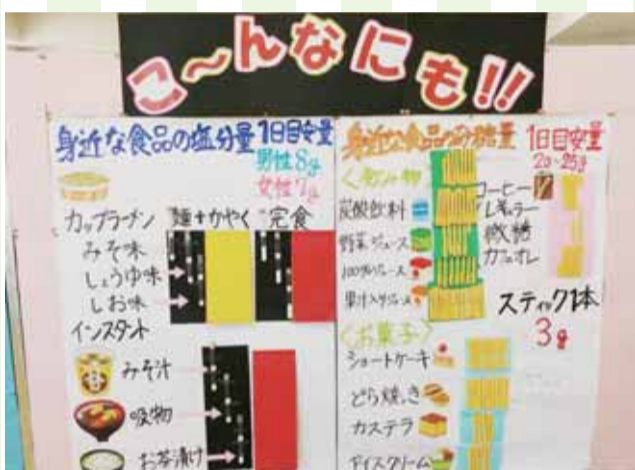 こ～んなにも!!
身近な食品の塩分量 1日目安量
男性8g
女性7g
カップラーメン 麺+かやく 完食
みそ味
しょうゆ味
しお味
インスタント
みそ汁
吸物
お茶漬け
身近な食品の砂糖量 1日目安量
20~25g
炭酸飲料
野菜ジュース
100%ジュース
果汁入りジュース
コーヒー
レギュラー
微糖
カフェオレ
スティック1本
3g
<お菓子>
ショートケーキ
どら焼き
カステラ
アイスクリーム